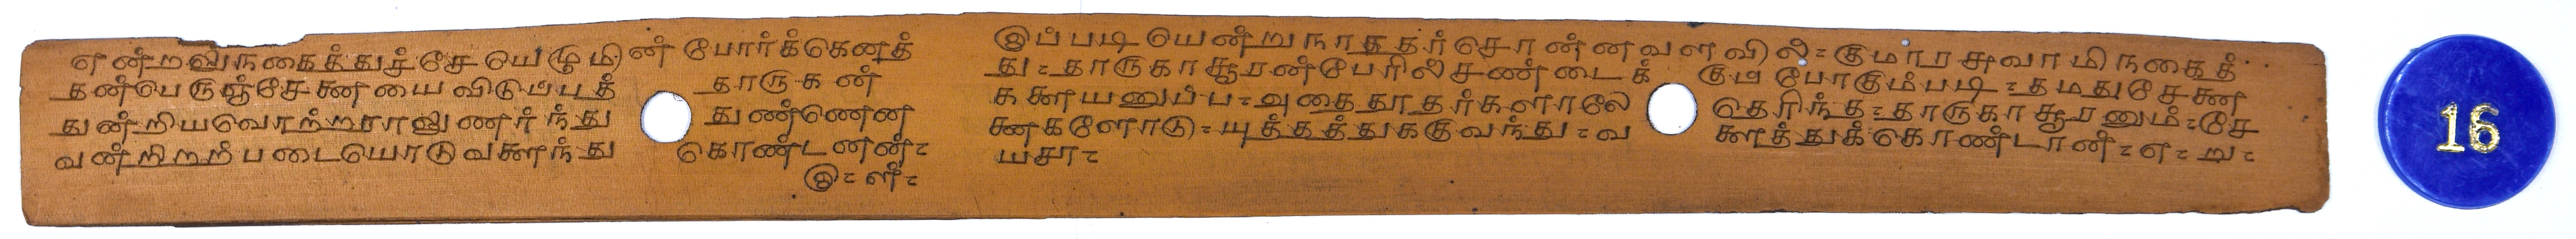 என்றலுநகைத்துச்சேயெழுமின் போர்க்கெனத்
தன்பெருஞ்சேனையை விடுப்பத் தாருகன்
துன்றியவொற்றராலுணர்ந்து துண்ணென
வன்றிறற்படையொடு வளைந்து கொண்டனன்=
இ= ள்=
இப்படியென்றுநாரதர்சொன்னவளவில்= குமாரசுவாமிநகைத்
து= தாருகாசூரன்பேரில்சண்டைக் கும் போகும்படி= தமதுசேனை
களையனுப்ப= அதைதூதர்களாலே தெரிந்த= தாருகாசூரனும்= சே
னைகளோடு= யுத்தத்துக்குவந்து= வ ளைத்துக்கொண்டான்= எ= று=